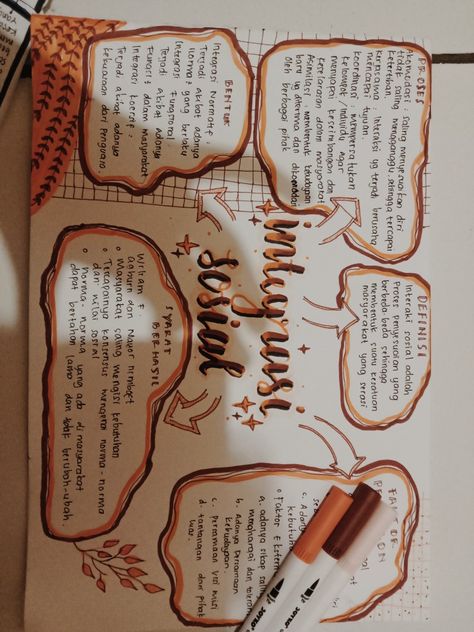 integrasi
sosial
DEFINISI
Interaksi sosial adalah
Proses penyesuaian yang
berbeda beda sehingga
membentuk suatu kesatuan
masyarakat yang serasi
PROSES
Akomodasi : saling menyesuaikan diri
tidak saling mengganggu, sehingga tercapai
ketertiban.
Kerjasama : interaksi yg terjadi berusaha
mencapai tujuan
koordinasi : mempersatukan
kelompok / individu agar
mencapai keseimbangan dan
keselarasan dalam masyarakat
Asimilasi : membentuk kebudayaan
baru yg diterima dan
oleh berbagai pihak
BENTUK
Integrasi Normatif
Terjadi akibat adanya
norma yang berlaku
Integrasi Fungsional
Terjadi akibat adanya
fungsi dalam masyarakat
Integrasi koersif
Terjadi akibat adanya
kekuasaan dari Penguasa.
SYARAT
BERHASIL
William F.
Ogburn dan Mayor Nimkoff
Masyarakat saling mengisi kebutuhan
Tercapainya konsensus mengenai norma-norma
dan nilai sosial
Norma-norma yang ada di masyarakat
dapat bertahan lama dan tidak berubah-ubah.
FAKTOR
c. Adanya
kebutuhan
Faktor Ekstern
a. adanya sikap saling
menghargai dan toleran
b. Adanya Persamaan
kebudayaan
c. Persamaan visi misi
d. tantangan dari pihak
luar.